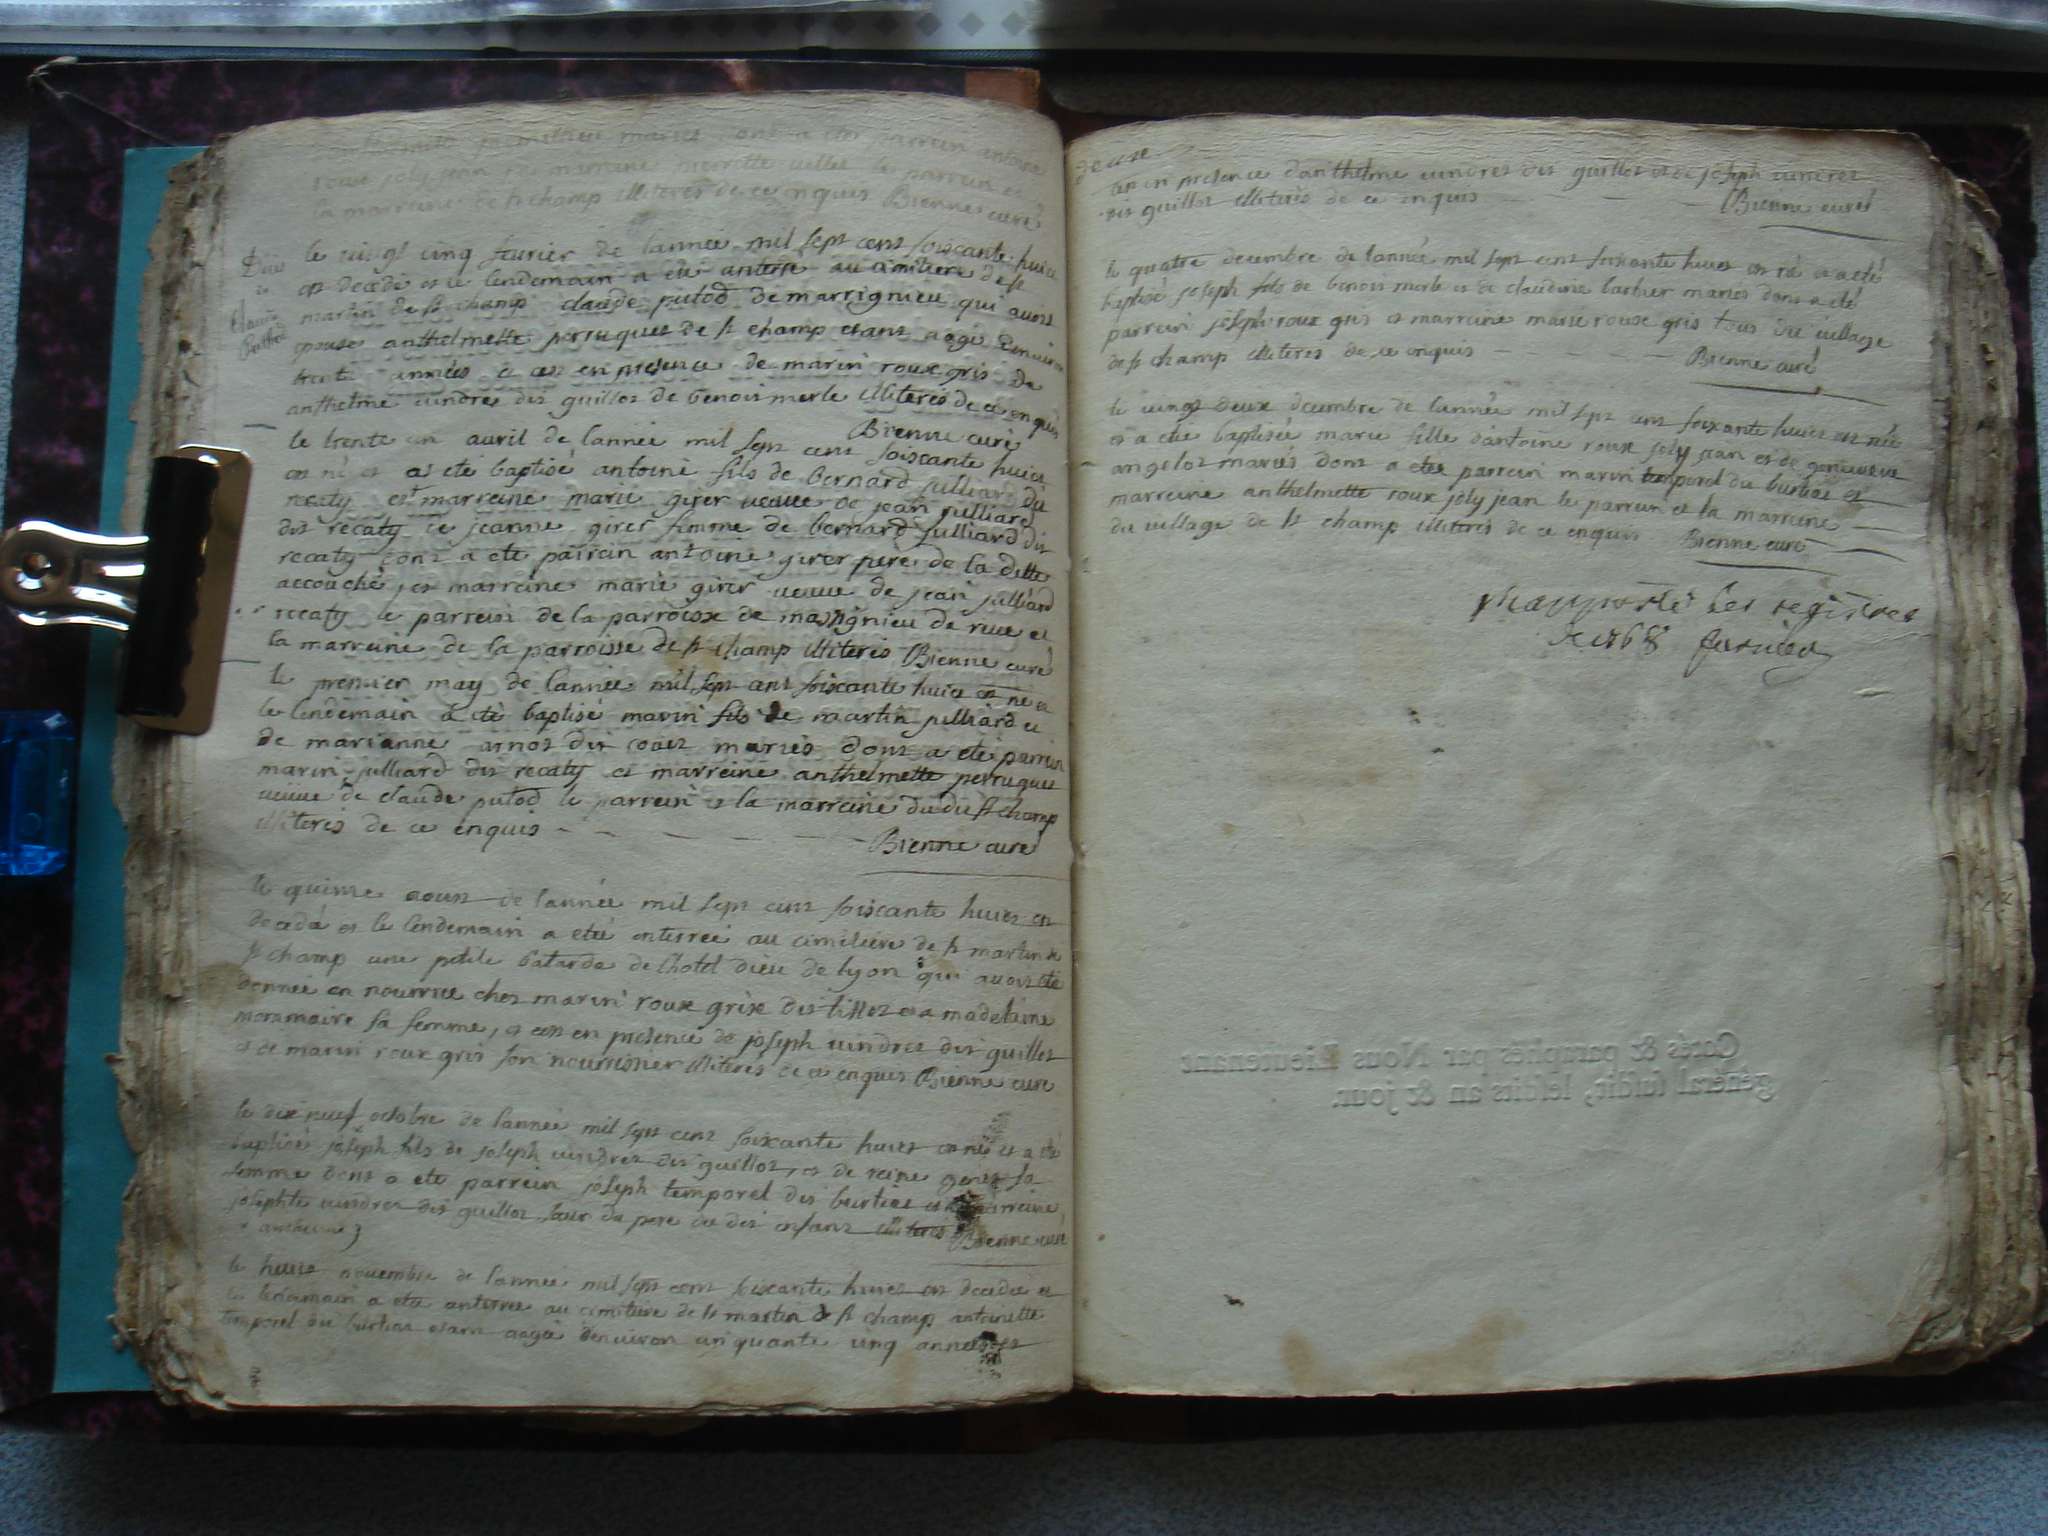 mariés dont a eté parrein antoine
roux joly jean et marreine pierrette le parrein et
la marreine de st champ illiterés de ce enquis Bienne curé
Décés
de
Claude
Puthod
le vingt cinq feurier de lannée mil sept cent soiscante huict
est decedé et le lendemain a eté anterré au cimitiere de st
martin de st champ claude putod de marrignieu qui auoit
epousé anthelmette perruquet de st champ etant aagé denuiron
trente années et cet en presence de marin roux gris de
anthelme vindret dit guillot de benoit merle illiterés de ce enquis
Bienne curé
le trente un auril de lannée mil sept cent soiscante huict
est né et a eté baptisé antoine fils de bernard julliard dit
recaty et marreine marie girer veuue de jean julliard
dit recaty de jeanne girer femme de bernard julliard dit
recaty dont a eté pairein antoine girer pere de la ditte
accouché, et marreine marie girer veuue de jean julliard
recaty le parrein de la parroisse de massignieu de riue et
la marreine de la parroisse de st champ illiterés Bienne curé
le premier may de lannée mil sept cent soiscante huict est né et
le lendemain a eté baptisé marin fils de martin julliard et
de marianne arnot dit mariés dont a eté parrein
marin julliard dit recaty et marreine anthelmette perruquet
veuue de claude putod le parrein et la marreine du dit st champ
illiterés de ce enquis
Bienne curé
le quinze aoust de lannée mil sept cent soiscante huict est
decedé et le lendemain a eté enterrée au cimitiere de st martin de
st champ une petite batarde de lhotel dieu de lyon qui auoit eté
donnée en nourrice chez marin roux grix dit tillet et a madelaine
moramaire sa femme, et cet en presence de joseph vindret dit guillot
et de marin roux gris son nourrissier illiterés de ce enquis Bienne curé
le dix neuf octobre de lannée mil sept cent soixante huict est né et a eté
baptisé joseph fils de joseph vindret dit guillot, et de reine genet sa
femme dont a eté parrein joseph temporel des burtiat et marreine
josephte vindret dit guillot sœur du pere du dit enfant illiterés
Bienne curé
le huict nouembre de lannée mil sept cent soiscante huict est decedée et
le lendemain a eté anterrée au cimitiere de st martin de st champ antoinette
temporel du burtiat etant aagée denuiron cinquante cinq années et
cet en presence danthelme vindret dit guillot et de joseph vindret
dit guillot illiterés de ce enquis
Bienne curé
le quatre decembre de lannée mil sept cent soixante huict est né et a eté
baptisé joseph fils de benoit merle et de claudine barbier mariés dont a eté
parrein joseph roux gris et marreine marie roux gris tous du uillage
de st champ illiterés de ce enquis
Bienne curé
le uingt deux decembre de lannée mil sept cent soixante huict est née
et a eté baptisée marie fille dantoine roux joly jean et de geneuieue
angelot mariés dont a eté parrein marin temporel du burtiat et
marreine anthelmette roux joly jean le parrein et la marreine
du uillage de st champ illiterés de ce enquis Bienne curé
rapporté les registres
de 1768
Cotés & paraphés par Nous Lieutenant
général susdit, lesdits an & jour.